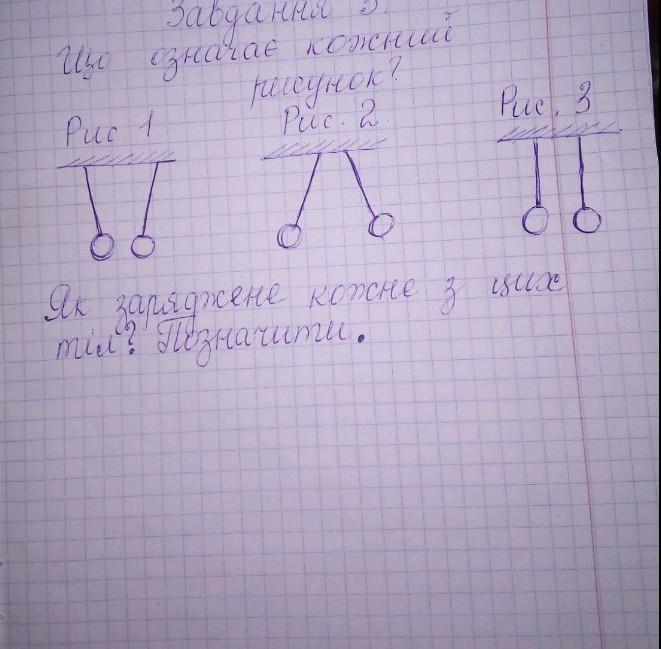 Завдання 3.
Що означає кожний
рисунок?
Рис 1
Рис. 2
Рис. 3
Як заряджене кожне з цих
тіл? Позначити.